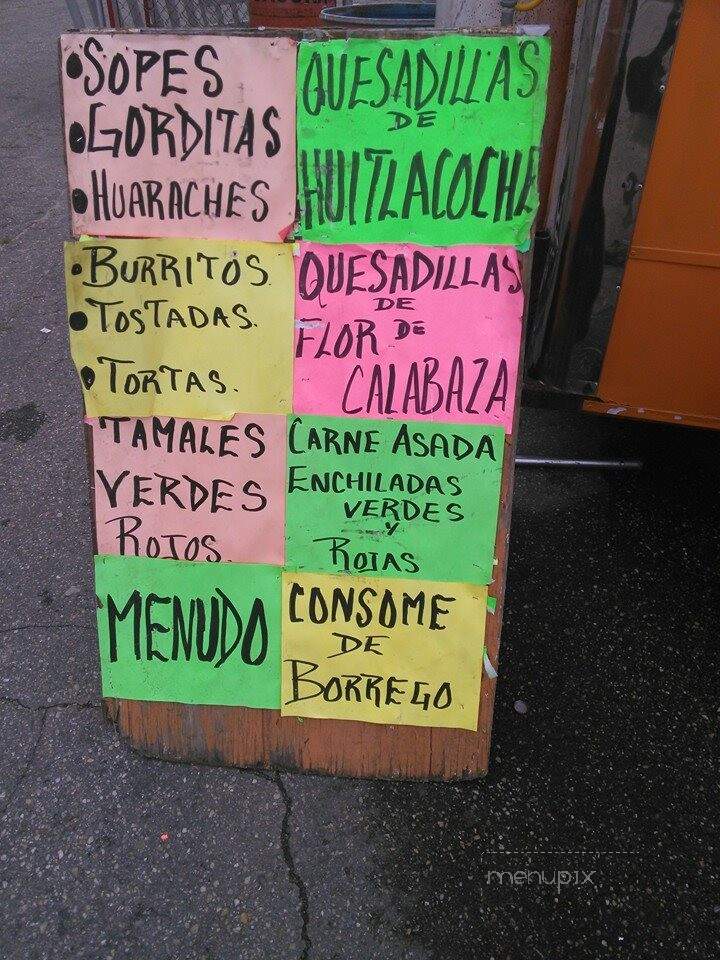 • SOPES
• GORDITAS
• HUARACHES
QUESADILLAS
DE
HUITLACOCHE
• BURRITOS.
• TOSTADAS.
• TORTAS.
QUESADILLAS
DE
FLOR DE
CALABAZA
TAMALES
VERDES
ROJOS.
CARNE ASADA
ENCHILADAS
VERDES
Y
ROJAS
MENUDO
CONSOME
DE
BORREGO
menupix